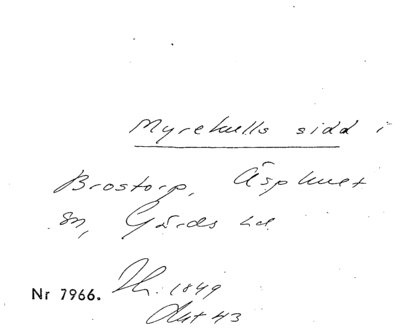 Myrekulls sidd i
Brostorp, Äsphult
sn, Gärds hd
Nr 7966. Th. 1849
Akt 43